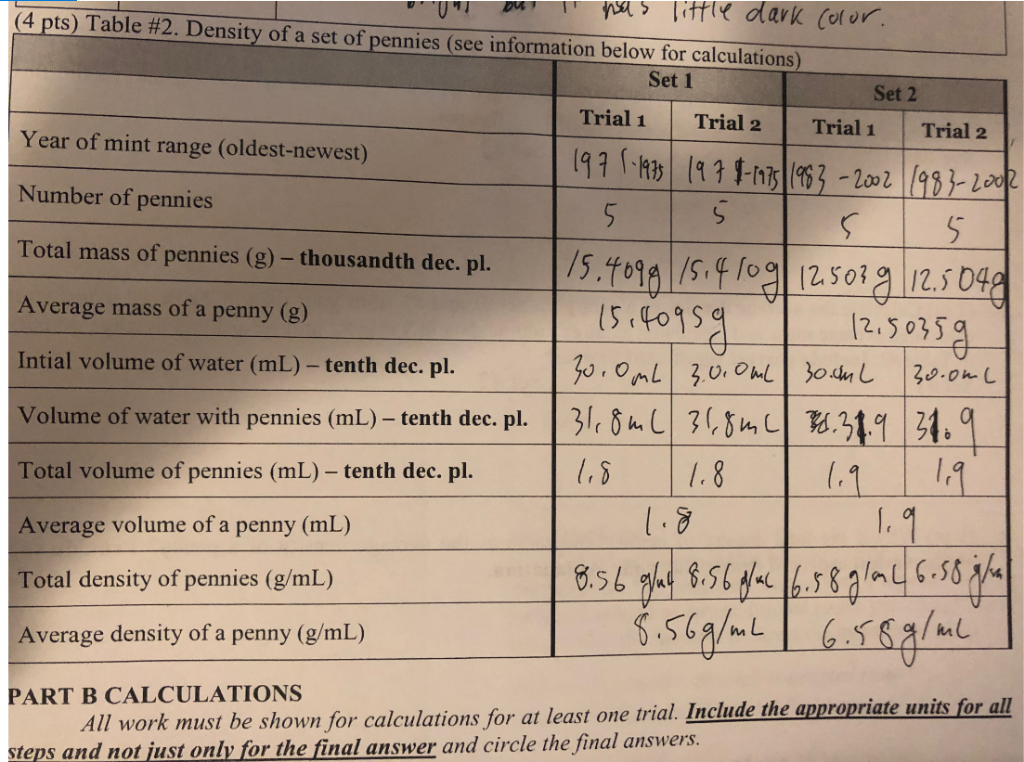 bright but it has little dark color.
(4 pts) Table #2. Density of a set of pennies (see information below for calculations)
Set 1 Set 2
Trial 1 Trial 2 Trial 1 Trial 2
Year of mint range (oldest-newest) 1975 197 -1975 1983 -2002 1983-2002
Number of pennies 5 5 5 5
Total mass of pennies (g) – thousandth dec. pl. 15.409g 15.410g 12.503g 12.504g
Average mass of a penny (g) 15.4095g 12.5035g
Intial volume of water (mL) – tenth dec. pl. 30.0mL 30.0mL 30.0mL 30.0mL
Volume of water with pennies (mL) – tenth dec. pl. 31.8mL 31.8mL 31.9 31.9
Total volume of pennies (mL) – tenth dec. pl. 1.8 1.8 1.9 1.9
Average volume of a penny (mL) 1.8 1.9
Total density of pennies (g/mL) 8.56 g/mL 8.56 g/mL 6.58 g/mL 6.58 g/mL
Average density of a penny (g/mL) 8.56g/mL 6.58g/mL
PART B CALCULATIONS
All work must be shown for calculations for at least one trial. Include the appropriate units for all
steps and not just only for the final answer and circle the final answers.